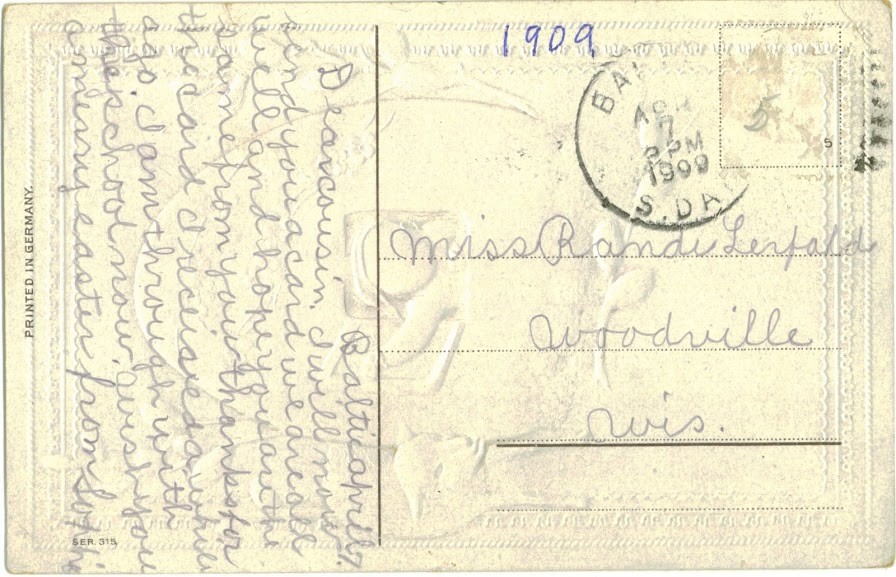 1909
BAL
APR
7
PM
1909
S. DAK
5
5
Miss Randi Lerfald
Woodville
Wis.
Baltic april 7.
Dear cousin, I will now
send you a card we are all
well and hope you are the
same from you thanks for
the card I received a while
ago. I am through with
the school now. wish you
a merry easter from
PRINTED IN GERMANY.
SER. 315.